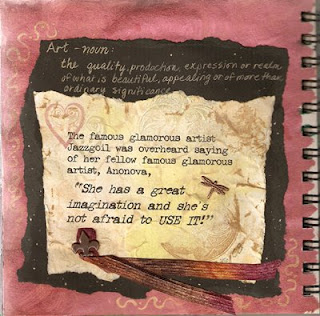 Art - noun:
the quality, production, expression or realm
of what is beautiful, appealing or of more than
ordinary significance
The famous glamorous artist
Jazzgoil was overheard saying
of her fellow famous glamorous
artist, Anonova,
"She has a great
imagination and she's
not afraid to USE IT!"